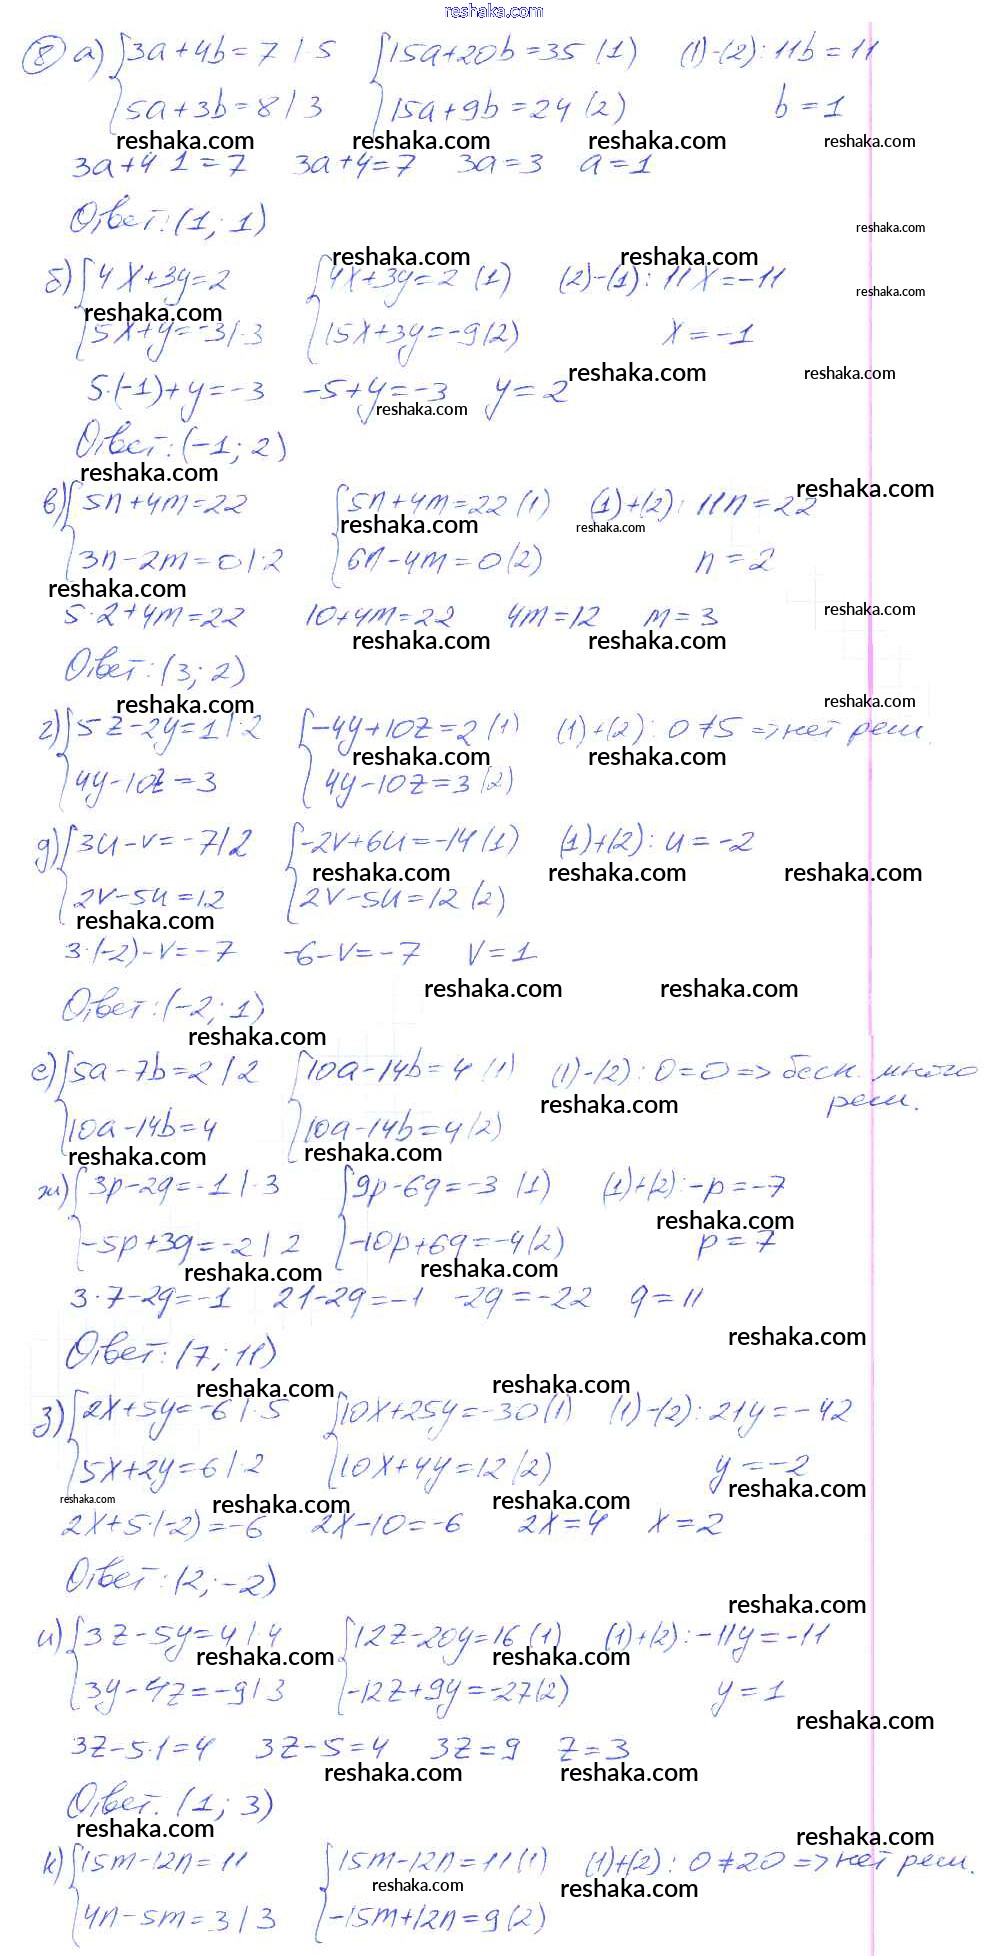 reshaka.com
8 а) {3a+4b=7 |·5 {15a+20b=35 (1) (1)-(2): 11b=11
5a+3b=8 |·3 15a+9b=24 (2) b=1
reshaka.com reshaka.com reshaka.com reshaka.com
3a+4·1=7 3a+4=7 3a=3 a=1
Ответ: (1; 1)
reshaka.com
reshaka.com reshaka.com
б) {4x+3y=2 {4x+3y=2 (1) (2)-(1): 11x=-11
reshaka.com reshaka.com
5x+y=-3 |·3 15x+3y=-9 (2) x=-1
reshaka.com reshaka.com
5·(-1)+y=-3 -5+y=-3 y=2
reshaka.com
Ответ: (-1; 2)
reshaka.com reshaka.com
в) {5n+4m=22 {5n+4m=22 (1) (1)+(2): 11n=22
reshaka.com reshaka.com
3n-2m=0 |·2 6n-4m=0 (2) n=2
reshaka.com reshaka.com
5·2+4m=22 10+4m=22 4m=12 m=3
reshaka.com reshaka.com
Ответ: (3; 2)
reshaka.com reshaka.com
г) {5z-2y=1 |·2 {-4y+10z=2 (1) (1)+(2): 0≠5 => нет реш.
reshaka.com reshaka.com
4y-10z=3 4y-10z=3 (2)
д) {3u-v=-7 |·2 {-2v+6u=-14 (1) (1)+(2): u=-2
reshaka.com reshaka.com reshaka.com
2v-5u=12 2v-5u=12 (2)
reshaka.com
3·(-2)-v=-7 -6-v=-7 v=1
reshaka.com reshaka.com
Ответ: (-2; 1)
reshaka.com
е) {5a-7b=2 |·2 {10a-14b=4 (1) (1)-(2): 0=0 => беск. много
reshaka.com реш.
10a-14b=4 10a-14b=4 (2)
reshaka.com reshaka.com
ж) {3p-2q=-1 |·3 {9p-6q=-3 (1) (1)+(2): -p=-7
reshaka.com
-5p+3q=-2 |·2 -10p+6q=-4 (2) p=7
reshaka.com reshaka.com
3·7-2q=-1 21-2q=-1 -2q=-22 q=11
reshaka.com
Ответ: (7; 11)
reshaka.com reshaka.com
з) {2x+5y=-6 |·5 {10x+25y=-30 (1) (1)-(2): 21y=-42
5x+2y=6 |·2 10x+4y=12 (2) y=-2
reshaka.com reshaka.com reshaka.com reshaka.com
2x+5·(-2)=-6 2x-10=-6 2x=4 x=2
Ответ: (2; -2)
reshaka.com
и) {3z-5y=4 |·4 {12z-20y=16 (1) (1)+(2): -11y=-11
reshaka.com reshaka.com
3y-4z=-9 |·3 -12z+9y=-27 (2) y=1
reshaka.com
3z-5·1=4 3z-5=4 3z=9 z=3
reshaka.com reshaka.com
Ответ: (1; 3)
reshaka.com reshaka.com
к) {15m-12n=11 {15m-12n=11 (1) (1)+(2): 0≠20 => нет реш.
reshaka.com reshaka.com
4n-5m=3 |·3 -15m+12n=9 (2)